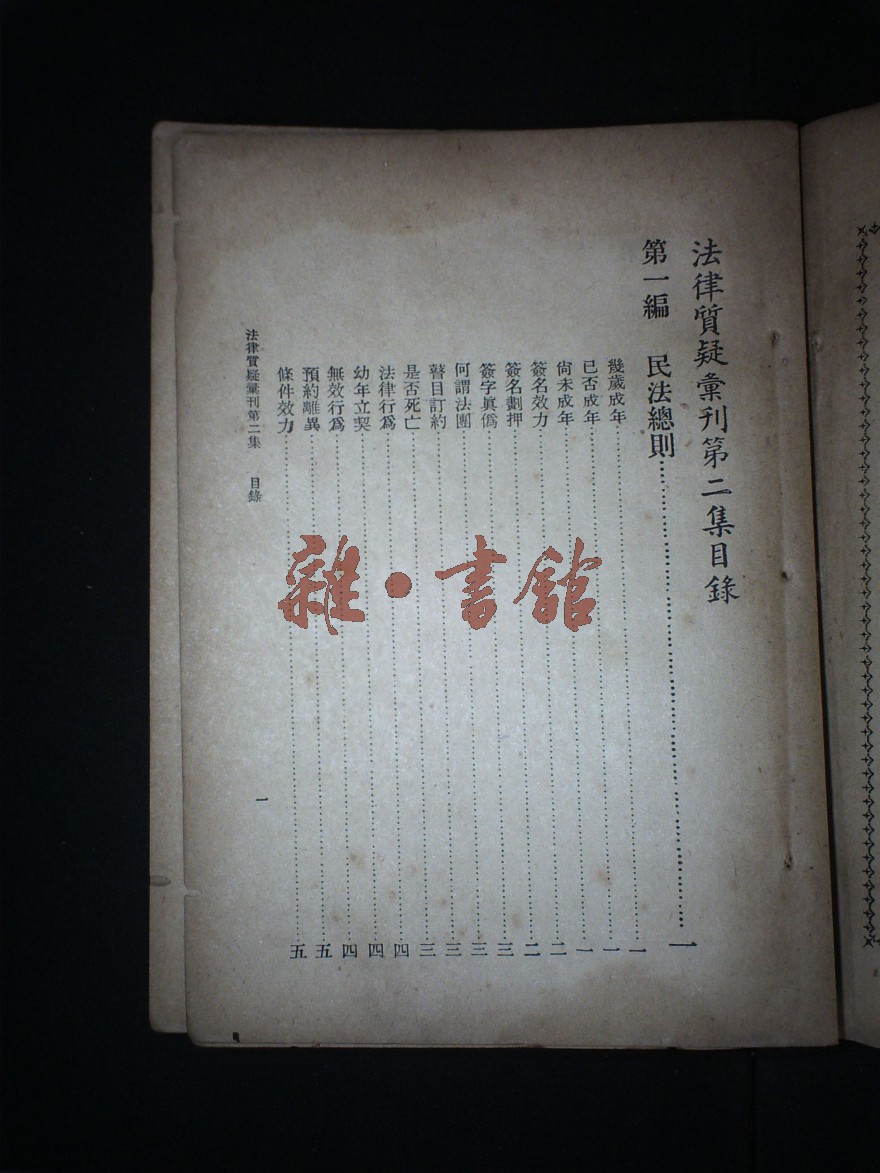 法律質疑彙刊第二集目錄
第一編 民法總則……一
幾歲成年……一
已否成年……一
尙未成年……一
簽名效力……二
簽名劃押……二
簽字眞僞……三
何謂法團……三
瞽目訂約……三
是否死亡……三
法律行爲……四
幼年立契……四
無效行爲……四
預約離異……五
條件效力……五
法律質疑彙刊第二集 目錄 一
雜·書館